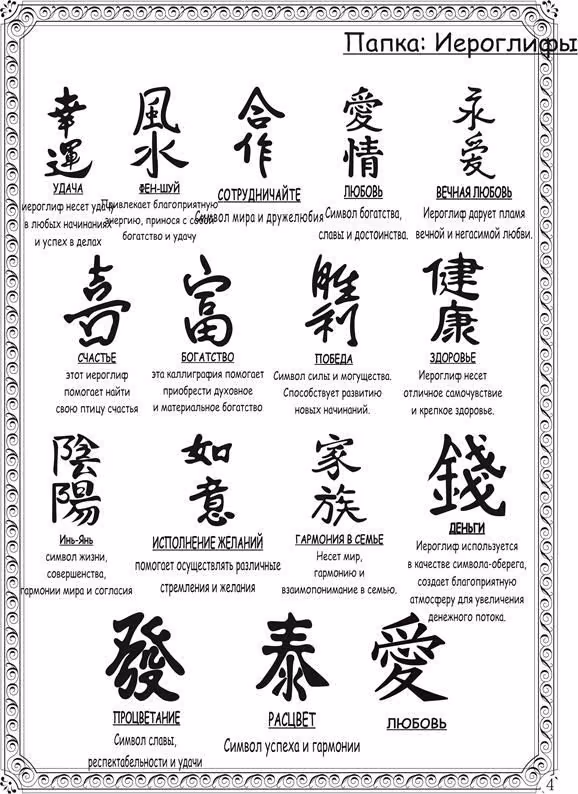 Папка: Иероглифы
幸運
風水
合作
愛情
永愛
УДАЧА
иероглиф несет удачу
в любых начинаниях
и успех в делах
ФЕН-ШУЙ
Привлекает благоприятную
энергию, принося с собой
богатство и удачу
СОТРУДНИЧАЙТЕ
Символ мира и дружелюбия
ЛЮБОВЬ
Символ богатства,
славы и достоинства.
ВЕЧНАЯ ЛЮБОВЬ
Иероглиф дарует пламя
вечной и негасимой любви.
喜
富
勝利
健康
СЧАСТЬЕ
этот иероглиф
помогает найти
свою птицу счастья
БОГАТСТВО
эта каллиграфия помогает
приобрести духовное
и материальное богатство
ПОБЕДА
Символ силы и могущества.
Способствует развитию
новых начинаний.
ЗДОРОВЬЕ
Иероглиф несет
отличное самочувствие
и крепкое здоровье.
陰陽
如意
家族
錢
Инь-Янь
символ жизни,
совершенства,
гармонии мира и согласия
ИСПОЛНЕНИЕ ЖЕЛАНИЙ
помогает осуществлять различные
стремления и желания
ГАРМОНИЯ В СЕМЬЕ
Несет мир,
гармонию и
взаимопонимание в семью.
ДЕНЬГИ
Иероглиф используется
в качестве символа-оберега,
создает благоприятную
атмосферу для увеличения
денежного потока.
發
泰
愛
ПРОЦВЕТАНИЕ
Символ славы,
респектабельности и удачи
РАСЦВЕТ
Символ успеха и гармонии
ЛЮБОВЬ
4